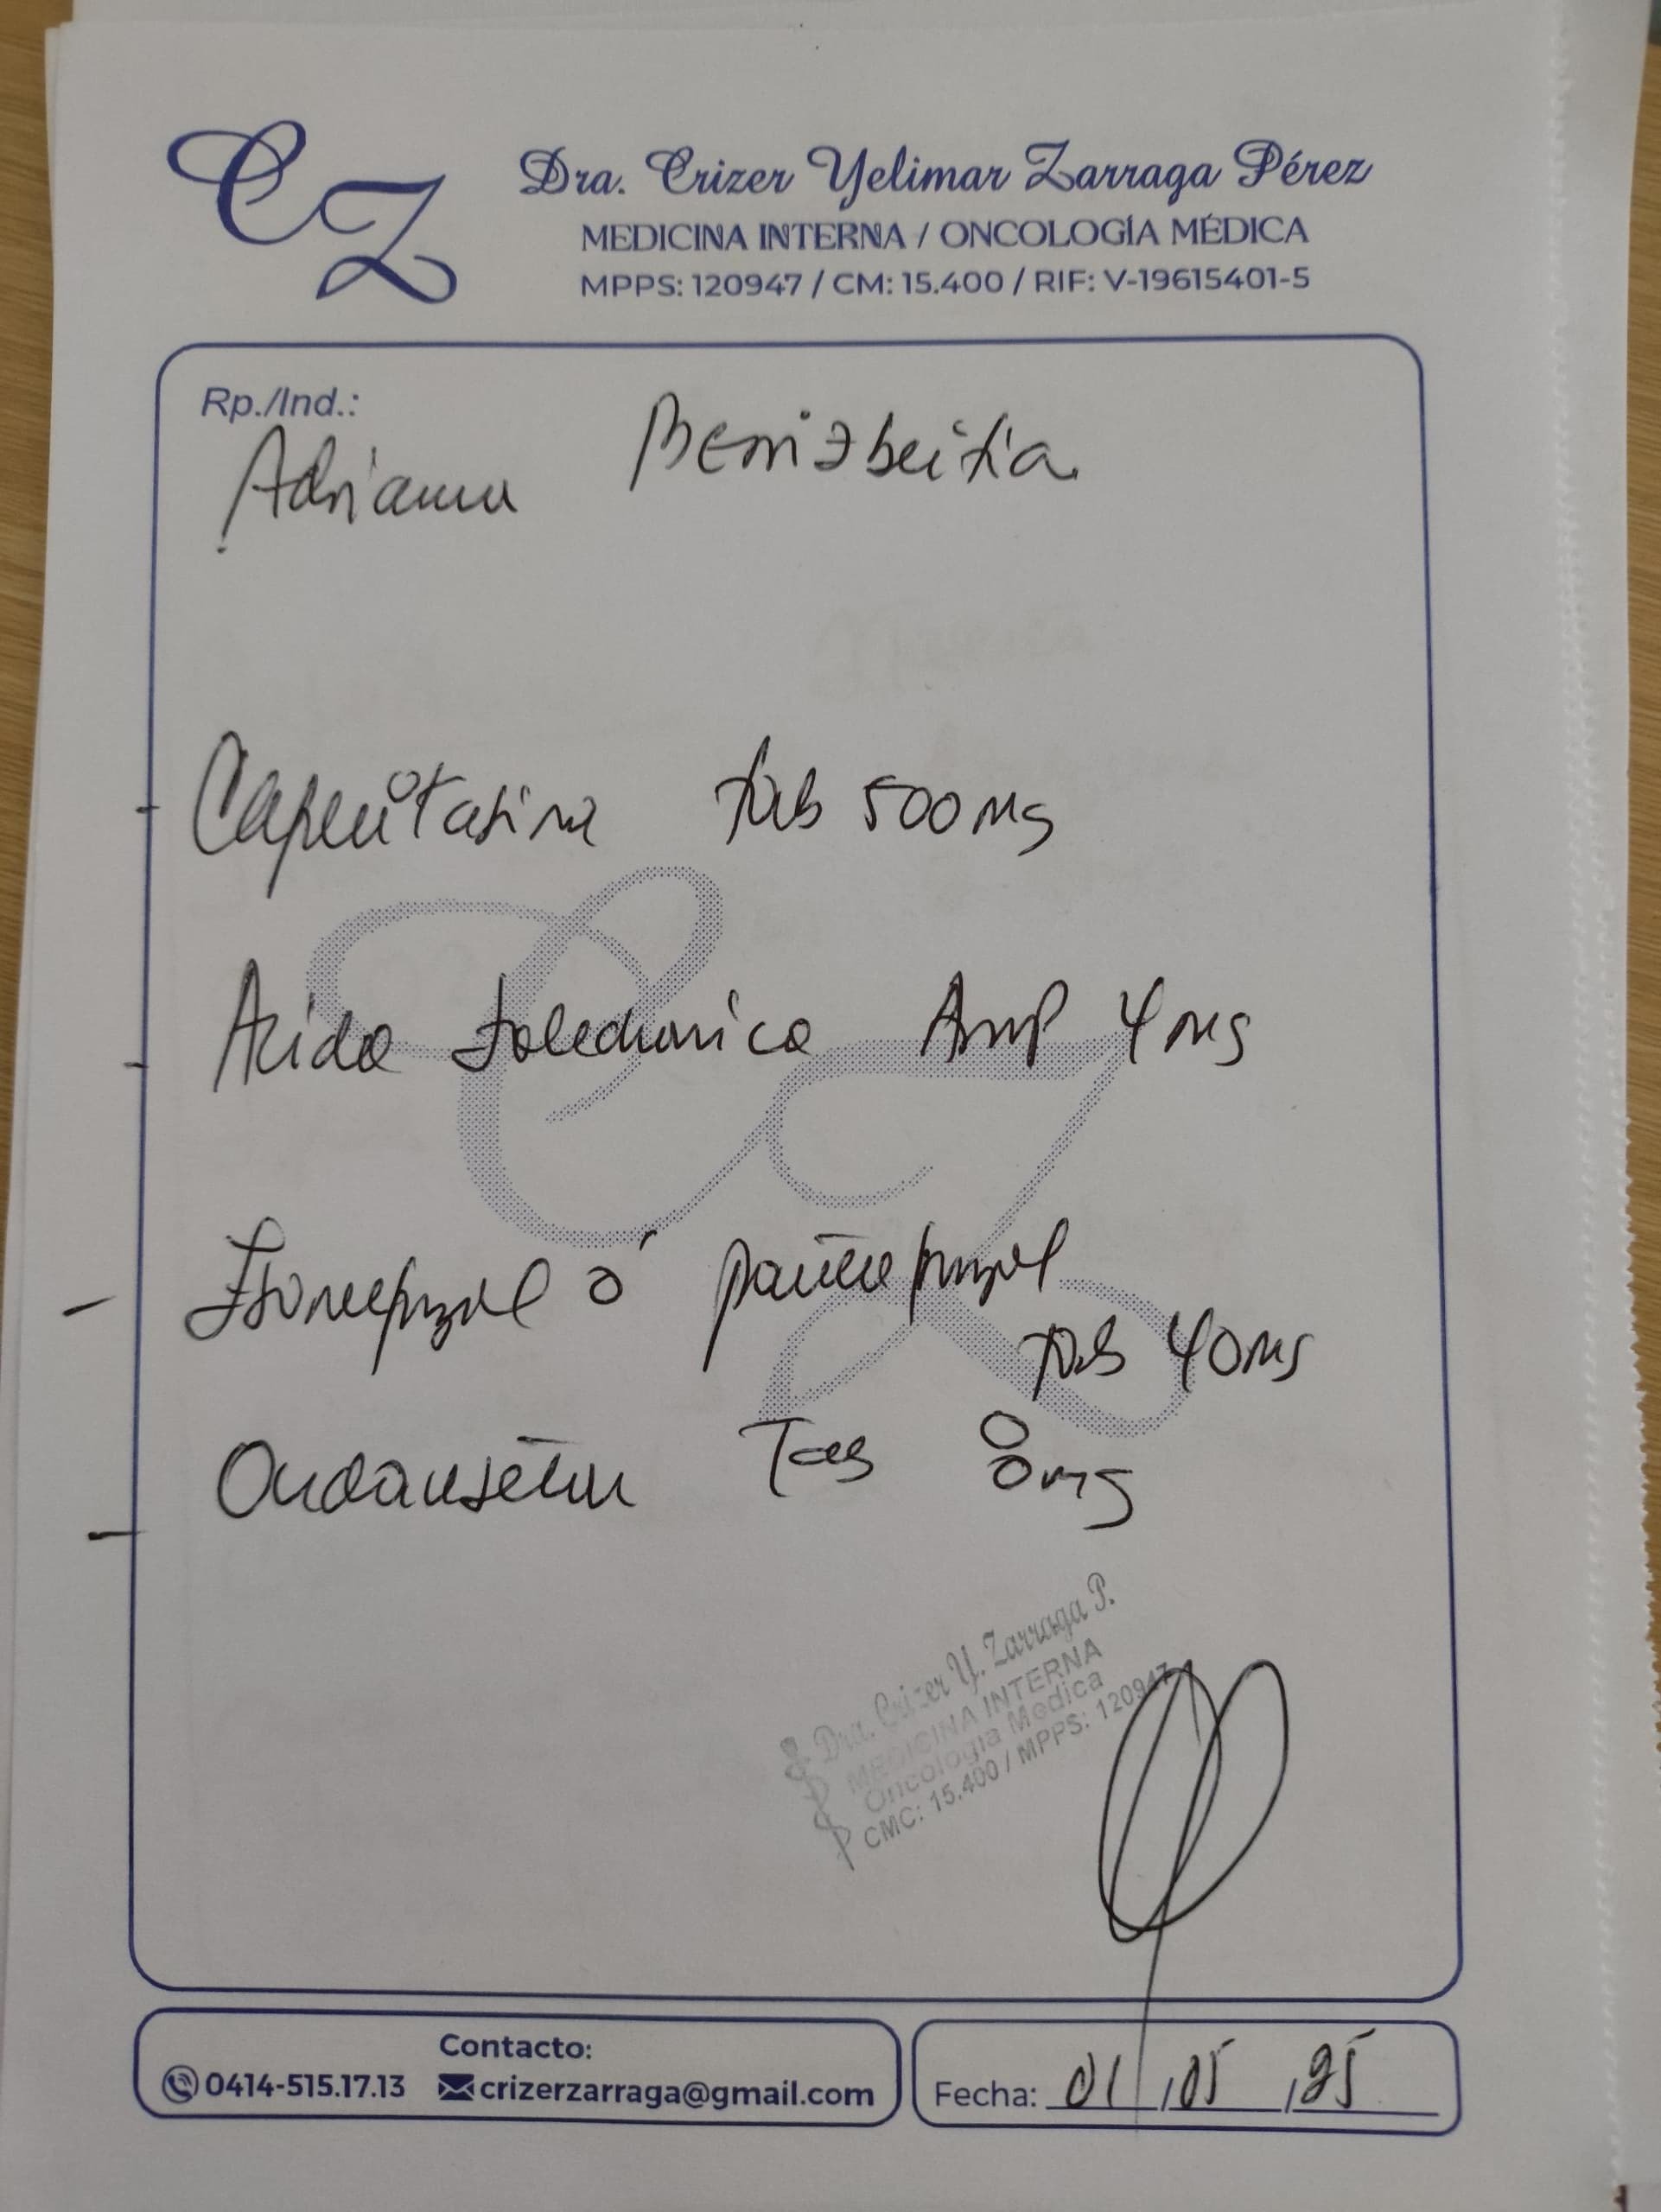 CZ
Dra. Crizer Yelimar Zarraga Pérez
MEDICINA INTERNA / ONCOLOGÍA MÉDICA
MPPS: 120947 / CM: 15.400 / RIF: V-19615401-5
Rp./Ind.:
Adriana Benizbeitia
- Capecitabina tab 500 mg
- Acido Zoledronico Amp 4 mg
- Esomeprazol ó pantoprazol
tab 40 mg
- Ondansetron Tab 8 mg
Dra. Crizer Y. Zarraga P.
MEDICINA INTERNA
Oncologia Medica
CMC: 15.400 / MPPS: 120947
Contacto:
0414-515.17.13 crizerzarraga@gmail.com
Fecha: 01/05/25